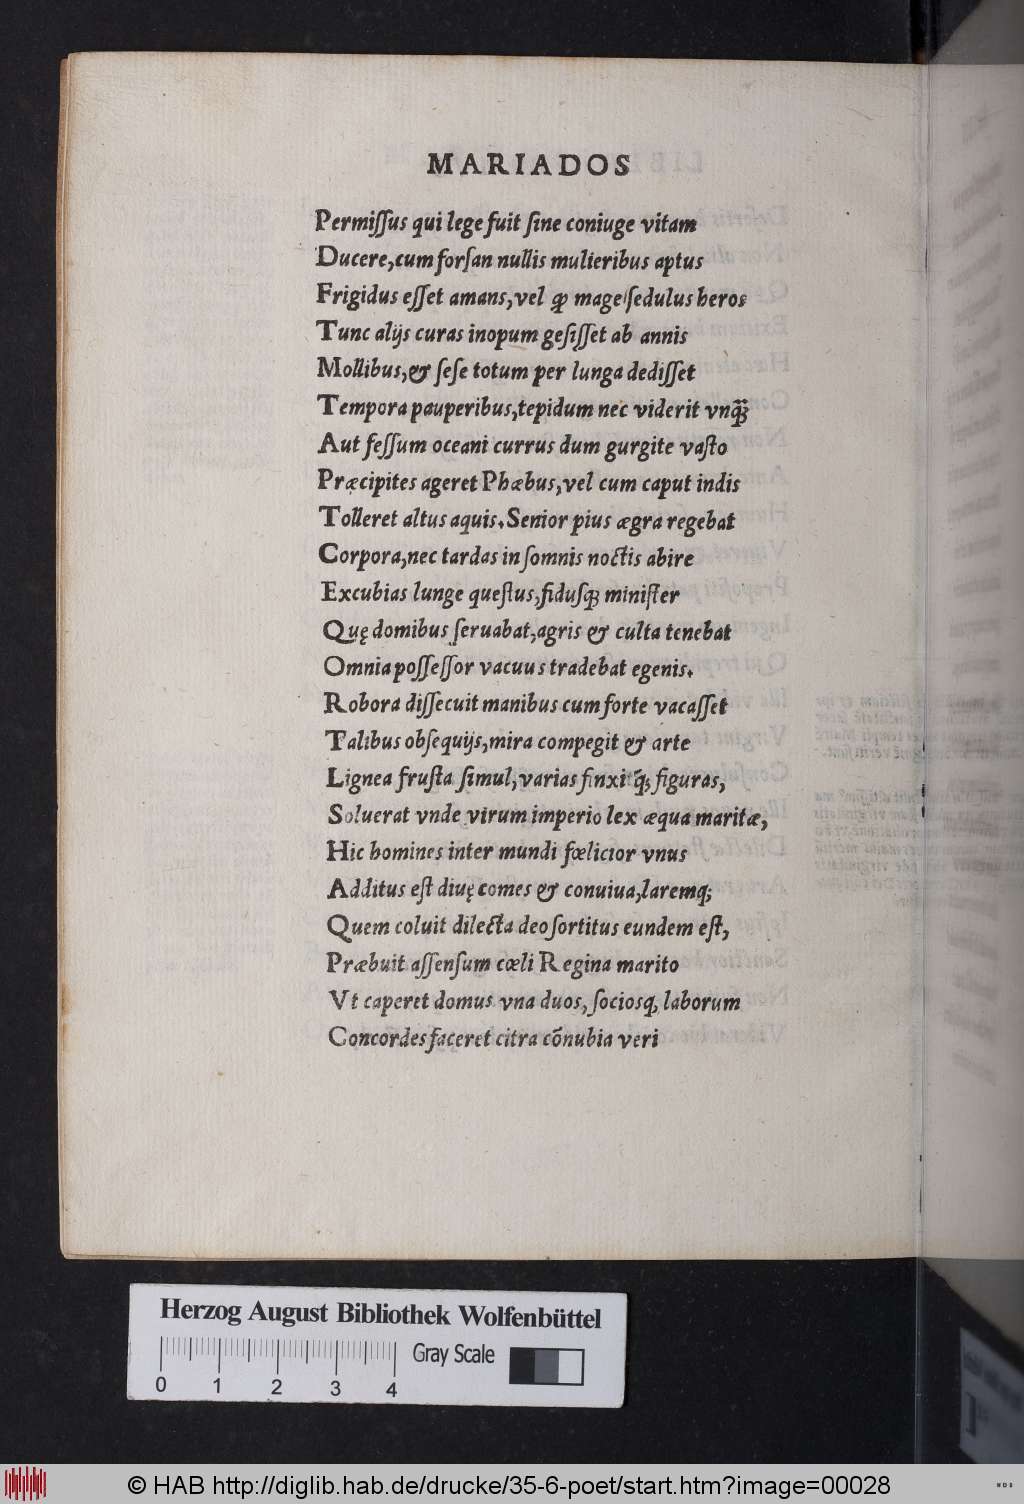 MARIADOS
Permiſſus qui lege fuit ſine coniuge vitam
Ducere,cum forſan nullis mulieribus aptus
Frigidus eſſet amans,vel ꝙ mage ſedulus heros
Tunc alijs curas inopum geſiſſet ab annis
Mollibus,& ſeſe totum per lunga dediſſet
Tempora pauperibus,tepidum nec viderit vnq̃ꝫ
Aut feſſum oceani currus dum gurgite vaſto
Præcipites ageret Phœbus,vel cum caput indis
Tolleret altus aquis.Senior pius ægra regebat
Corpora,nec tardas in ſomnis noctis abire
Excubias lunge queſtus,fiduſqꝫ miniſter
Quę domibus ſeruabat,agris & culta tenebat
Omnia poſſeſſor vacuus tradebat egenis.
Robora diſſecuit manibus cum forte vacaſſet
Talibus obſequijs,mira compegit & arte
Lignea fruſta ſimul,varias finxit q̃ꝫ figuras,
Soluerat vnde virum imperio lex æqua maritæ,
Hic homines inter mundi fœlicior vnus
Additus eſt diuę comes & conuiua,laremq;
Quem coluit dilecta deo ſortitus eundem eſt,
Præbuit aſſenſum cœli Regina marito
Vt caperet domus vna duos, ſociosq, laborum
Concordes faceret citra cõnubia veri
Herzog August Bibliothek Wolfenbüttel
Gray Scale
0 1 2 3 4
© HAB http://diglib.hab.de/drucke/35-6-poet/start.htm?image=00028